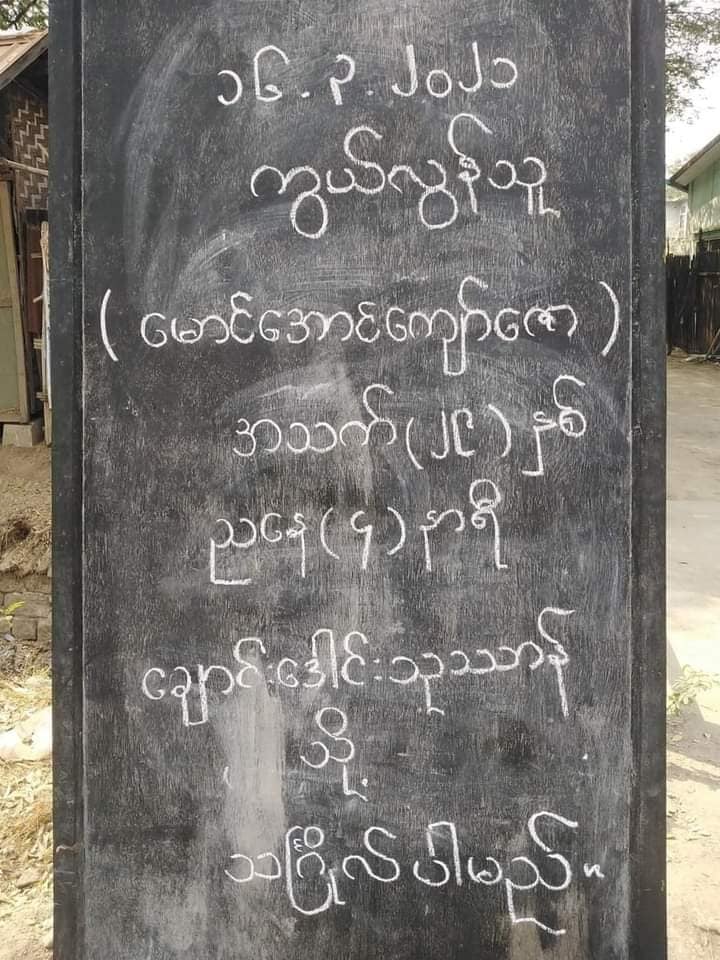 ၁၆.၃.၂၀၂၁
ကွယ်လွန်သူ
(မောင်အောင်ကျော်ဇော)
အသက်(၂၉)နှစ်
ညနေ(၄)နာရီ
ချောင်းဒေါင်းသုဿာန်
သို့
သင်္ဂြိုလ်ပါမည်။